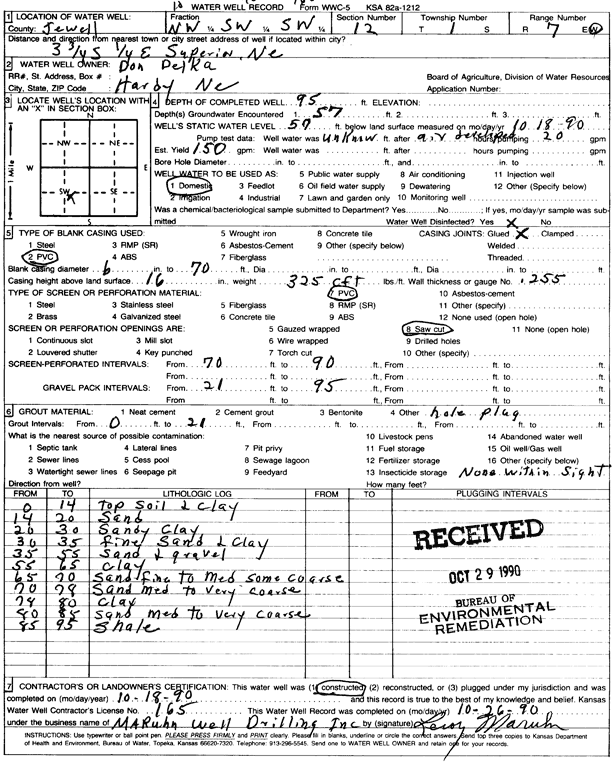 WATER WELL RECORD Form WWC-5 KSA 82a-1212
1 LOCATION OF WATER WELL: Fraction Section Number Township Number Range Number
County: Jewell NW ¼ SW ¼ SW ¼ 12 T 1 S R 7 E W
Distance and direction from nearest town or city street address of well if located within city?
2 WATER WELL OWNER: Don
RR#, St. Address, Box # : Board of Agriculture, Division of Water Resources
City, State, ZIP Code : Hardy Ne Application Number:
3 LOCATE WELL'S LOCATION WITH AN "X" IN SECTION BOX:
N
NW NE
W E
SW X SE
S
1 Mile
4 DEPTH OF COMPLETED WELL 95 ft. ELEVATION:
Depth(s) Groundwater Encountered 1. 57 ft. 2. ft. 3. ft.
WELL'S STATIC WATER LEVEL 57 ft. below land surface measured on mo/day/yr 10-18-90
Pump test data: Well water was unknow ft. after air hours pumping 20 gpm
Est. Yield 150 gpm: Well water was ft. after hours pumping gpm
Bore Hole Diameter in. to ft., and in. to ft.
WELL WATER TO BE USED AS: 5 Public water supply 8 Air conditioning 11 Injection well
1 Domestic 3 Feedlot 6 Oil field water supply 9 Dewatering 12 Other (Specify below)
2 Irrigation 4 Industrial 7 Lawn and garden only 10 Monitoring well
Was a chemical/bacteriological sample submitted to Department? Yes No ; If yes, mo/day/yr sample was sub-
mitted Water Well Disinfected? Yes X No
5 TYPE OF BLANK CASING USED: 5 Wrought iron 8 Concrete tile CASING JOINTS: Glued X Clamped
1 Steel 3 RMP (SR) 6 Asbestos-Cement 9 Other (specify below) Welded
2 PVC 4 ABS 7 Fiberglass Threaded
Blank casing diameter 6 in. to 70 ft., Dia in. to ft., Dia in. to ft.
Casing height above land surface 16 in., weight 325 cft lbs./ft. Wall thickness or gauge No. .255
TYPE OF SCREEN OR PERFORATION MATERIAL: 7 PVC 10 Asbestos-cement
1 Steel 3 Stainless steel 5 Fiberglass 8 RMP (SR) 11 Other (specify)
2 Brass 4 Galvanized steel 6 Concrete tile 9 ABS 12 None used (open hole)
SCREEN OR PERFORATION OPENINGS ARE: 5 Gauzed wrapped 8 Saw cut 11 None (open hole)
1 Continuous slot 3 Mill slot 6 Wire wrapped 9 Drilled holes
2 Louvered shutter 4 Key punched 7 Torch cut 10 Other (specify)
SCREEN-PERFORATED INTERVALS: From 70 ft. to 90 ft., From ft. to ft.
From ft. to ft., From ft. to ft.
GRAVEL PACK INTERVALS: From 21 ft. to 95 ft., From ft. to ft.
From ft. to ft., From ft. to ft.
6 GROUT MATERIAL: 1 Neat cement 2 Cement grout 3 Bentonite 4 Other hole plug
Grout Intervals: From 0 ft. to 21 ft., From ft. to ft., From ft. to ft.
What is the nearest source of possible contamination: 10 Livestock pens 14 Abandoned water well
1 Septic tank 4 Lateral lines 7 Pit privy 11 Fuel storage 15 Oil well/Gas well
2 Sewer lines 5 Cess pool 8 Sewage lagoon 12 Fertilizer storage 16 Other (specify below)
3 Watertight sewer lines 6 Seepage pit 9 Feedyard 13 Insecticide storage None within Sight
Direction from well? How many feet?
FROM TO LITHOLOGIC LOG FROM TO PLUGGING INTERVALS
0 14 top Soil & Clay
14 20 Sand
20 30 Sandy Clay
30 35 fine Sand & Clay
35 55 Sand & gravel
55 65 Clay
65 70 Sand fine to Med some coarse
70 78 Sand med to very coarse
78 80 Clay
80 85 Sand med to very coarse
85 95 Shale
RECEIVED
OCT 29 1990
BUREAU OF
ENVIRONMENTAL
REMEDIATION
7 CONTRACTOR'S OR LANDOWNER'S CERTIFICATION: This water well was (1) constructed, (2) reconstructed, or (3) plugged under my jurisdiction and was
completed on (mo/day/year) 10-18-90 and this record is true to the best of my knowledge and belief. Kansas
Water Well Contractor's License No. 165 This Water Well Record was completed on (mo/day/yr) 10-26-90
under the business name of Maruhn Well Drilling Inc by (signature) Leroy Maruhn
INSTRUCTIONS: Use typewriter or ball point pen. PLEASE PRESS FIRMLY and PRINT clearly. Please fill in blanks, underline or circle the correct answers. Send top three copies to Kansas Department
of Health and Environment, Bureau of Water, Topeka, Kansas 66620-7320. Telephone: 913-296-5545. Send one to WATER WELL OWNER and retain one for your records.